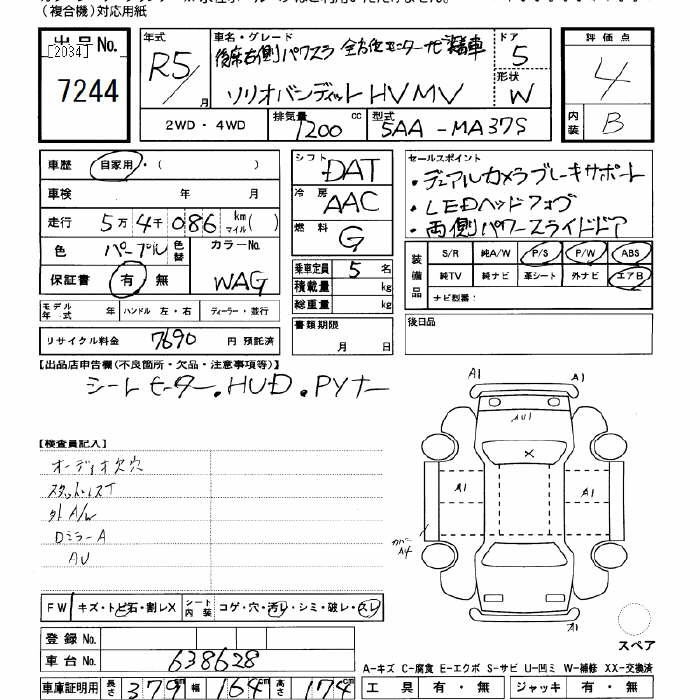 （複合機）対応用紙
出品No.
[2034]
7244
年式
R5/月
車名・グレード
後席右側パワスラ 全方位モニターナビ装着車
ソリオバンディット HV MV
ドア
5
形状
W
評価点
4
内装
B
2WD・4WD
排気量
1200 cc
型式
5AA-MA37S
車歴 自家用・( )
車検 年 月
走行 5万4千086 km マイル( )
色 パープル 色替 カラーNo.
保証書 有 無 WAG
モデル年式 ハンドル 左・右 ディーラー・並行
リサイクル料金 7690 円 預託済
シフト DAT
冷房 AAC
燃料 G
乗車定員 5 名
積載量 kg
総重量 kg
書類期限
月 日
セールスポイント
・デュアルカメラブレーキサポート
・LEDヘッドフォグ
・両側パワースライドドア
装備品
S/R 純A/W P/S P/W ABS
純TV 純ナビ 革シート 外ナビ エアB
ナビ型番：
後日品
【出品店申告欄(不良箇所・欠品・注意事項等)】
シートモーター.HUD.PYナー
【検査員記入】
オーディオ欠穴
外A/w
DミラーA
AU
A1
A1
AU1
A1
A1
A1
カバー
A4
FW キズ・トビ石・割レX シート内装 コゲ・穴・汚レ・シミ・破レ・スレ
登録No.
車台No. 638628
車庫証明用 長さ 379 cm 幅 164 cm 高さ 174 cm
スペア
A-キズ C-腐食 E-エクボ S-サビ U-凹ミ W-補修 XX-交換済
工具 有・無 ジャッキ 有・無